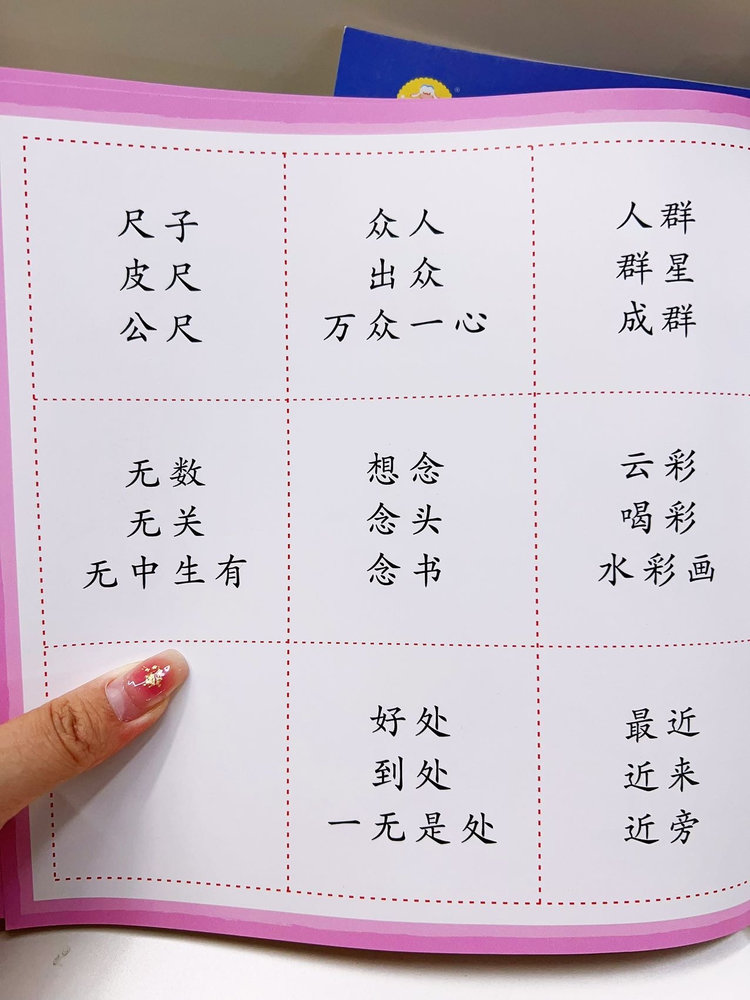 尺子
皮尺
公尺
众人
出众
万众一心
人群
群星
成群
无数
无关
无中生有
想念
念头
念书
云彩
喝彩
水彩画
好处
到处
一无是处
最近
近来
近旁